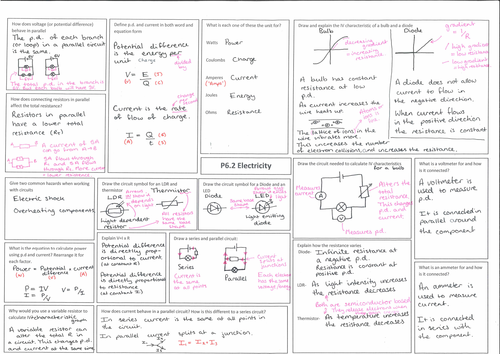 How does voltage (or potential difference)
behave in parallel
The p.d. of each branch
(or loops in a parallel circuit)
is the same.
The total p.d. in the branch is
Define p.d. and current in both word and
equation form
Potential difference
is the energy per
unit charge
divided by
V = E (J)
(V) Q (C)
Current is the rate
of flow of charge.
I = Q (C)
(A) t (s)
What is each one of these the unit for?
Watts Power
Coulombs Charge
Amperes Current
("Amps")
Joules Energy
Ohms Resistance
Draw and explain the IV characteristics of a bulb and a diode
Bulb
decreasing
gradient
= increasing
resistance
A bulb has constant
resistance at low
p.d.
As current increases the
wire heats up.
The lattice of ions in the
wire vibrates more.
This increases the number
of electron collisions, and increases the resistance.
Diode
gradient
= 1/R
high gradient
= low resistance
low gradient
A diode does not allow
current to flow in
the negative direction.
When current flows
in the positive direction
the resistance is constant
How does connecting resistors in parallel
affect the total resistance?
Resistors in parallel
have a lower total
resistance (RT)
A current of 5A
5A flow through
R1 and 5A flow
through R2. More current
= lower resistance
P6.2 Electricity
Give two common hazards when working
with circuits
Electric shock
Overheating components
Draw the circuit symbol for an LDR and
thermistor
LDR
Thermistor
Light dependent
resistor
All resistors
have the
same shape
Draw the circuit symbol for a Diode and an
LED
Diode
LED
Same base
shape
Light emitting
diode
Draw the circuit needed to calculate IV characteristics
for a bulb
Measures
current
Alters the
total
resistance
This changes
p.d. and
current
Measures
p.d.
What is a voltmeter for and how
is it connected?
A voltmeter is
used to measure
p.d.
It is connected in
parallel around
the component
What is the equation to calculate power
using p.d and current? Rearrange it for
each factor.
Power = Potential x current
difference
(W) (V) (A)
P = IV V = P/I
I = P/V
Explain V=I x R
Potential difference
is directly propor-
tional to current
(at constant R)
Potential difference
is directly proportional
to resistance
(at constant I)
Draw a series and parallel circuit:
Series
Current is
the same
at all points
Parallel
Explain how the resistance varies
Diode: Infinite resistance at
a negative p.d.
Resistance is constant at
positive p.d.
LDR: As light intensity increases
the resistance decreases
Both are semiconductor based
Thermistor: As temperature increases
the resistance decreases
What is an ammeter for and how is it
connected?
An ammeter is
used to measure
current.
It is connected
in series with
the component.
Why would you use a variable resistor to
calculate IV characteristics
A variable resistor can
alter the total R in
a circuit. This changes p.d.
and current at the same time
How does current behave in a parallel circuit? How is this different to a series circuit?
In series current is the same at all points in
the circuit.
In parallel current splits at a junction.
I1 = I2 + I3